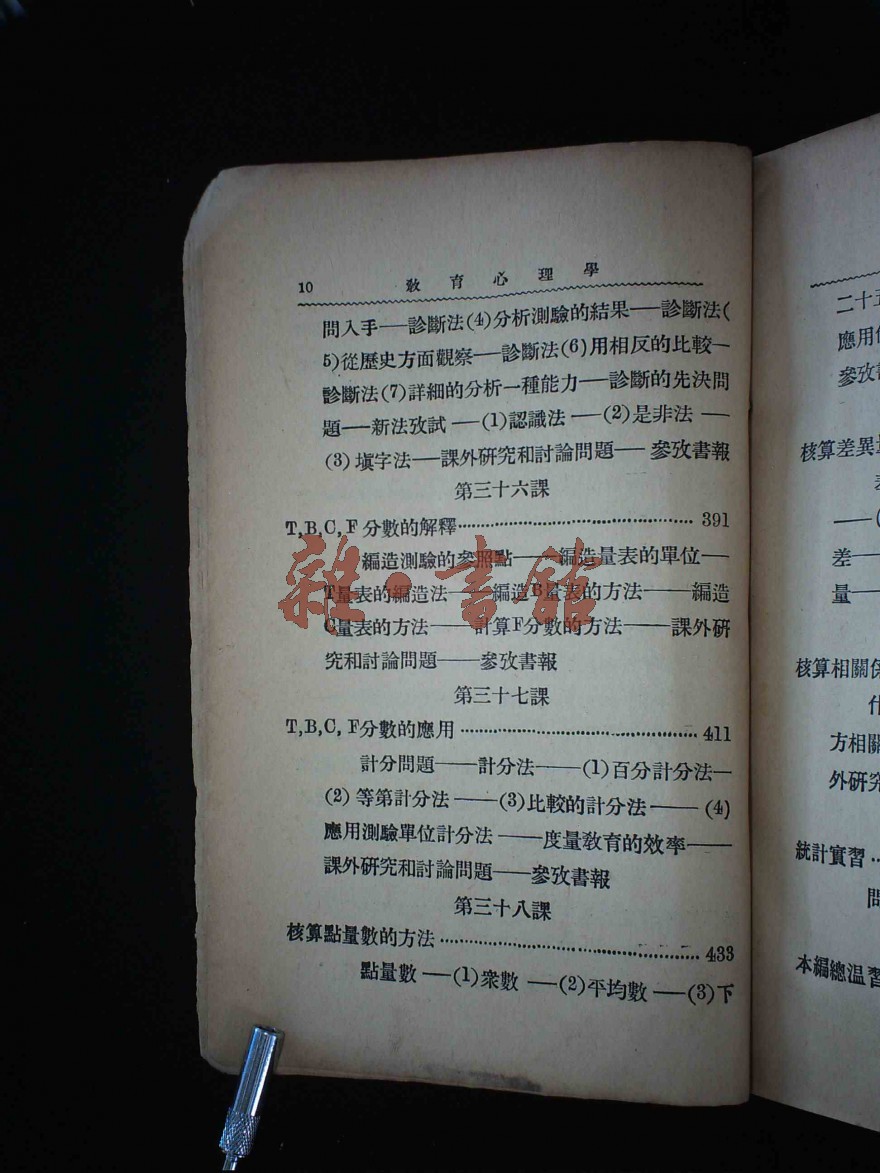 10 敎育心理學
問入手——診斷法(4)分析測驗的結果——診斷法(
5)從歷史方面觀察——診斷法(6)用相反的比較—
診斷法(7)詳細的分析一種能力——診斷的先決問
題——新法攷試——(1)認識法——(2)是非法——
(3)塡字法——課外研究和討論問題——參攷書報
第三十六課
T,B,C,F分數的解釋·································· 391
編造測驗的參照點——編造量表的單位—
T量表的編造法——編造B量表的方法——編造
C量表的方法——計算F分數的方法——課外研
究和討論問題——參攷書報
第三十七課
T,B,C,F分數的應用·································· 411
計分問題——計分法——(1)百分計分法—
(2)等第計分法——(3)比較的計分法——(4)
應用測驗單位計分法——度量敎育的效率——
課外研究和討論問題——參攷書報
第三十八課
核算點量數的方法·································· 433
點量數——(1)衆數——(2)平均數——(3)下
雜·書館
二十五
應用
參攷
核算差異
——(
差——
量——
核算相關係
什
方相關
外研究
統計實習
問
本編總温習